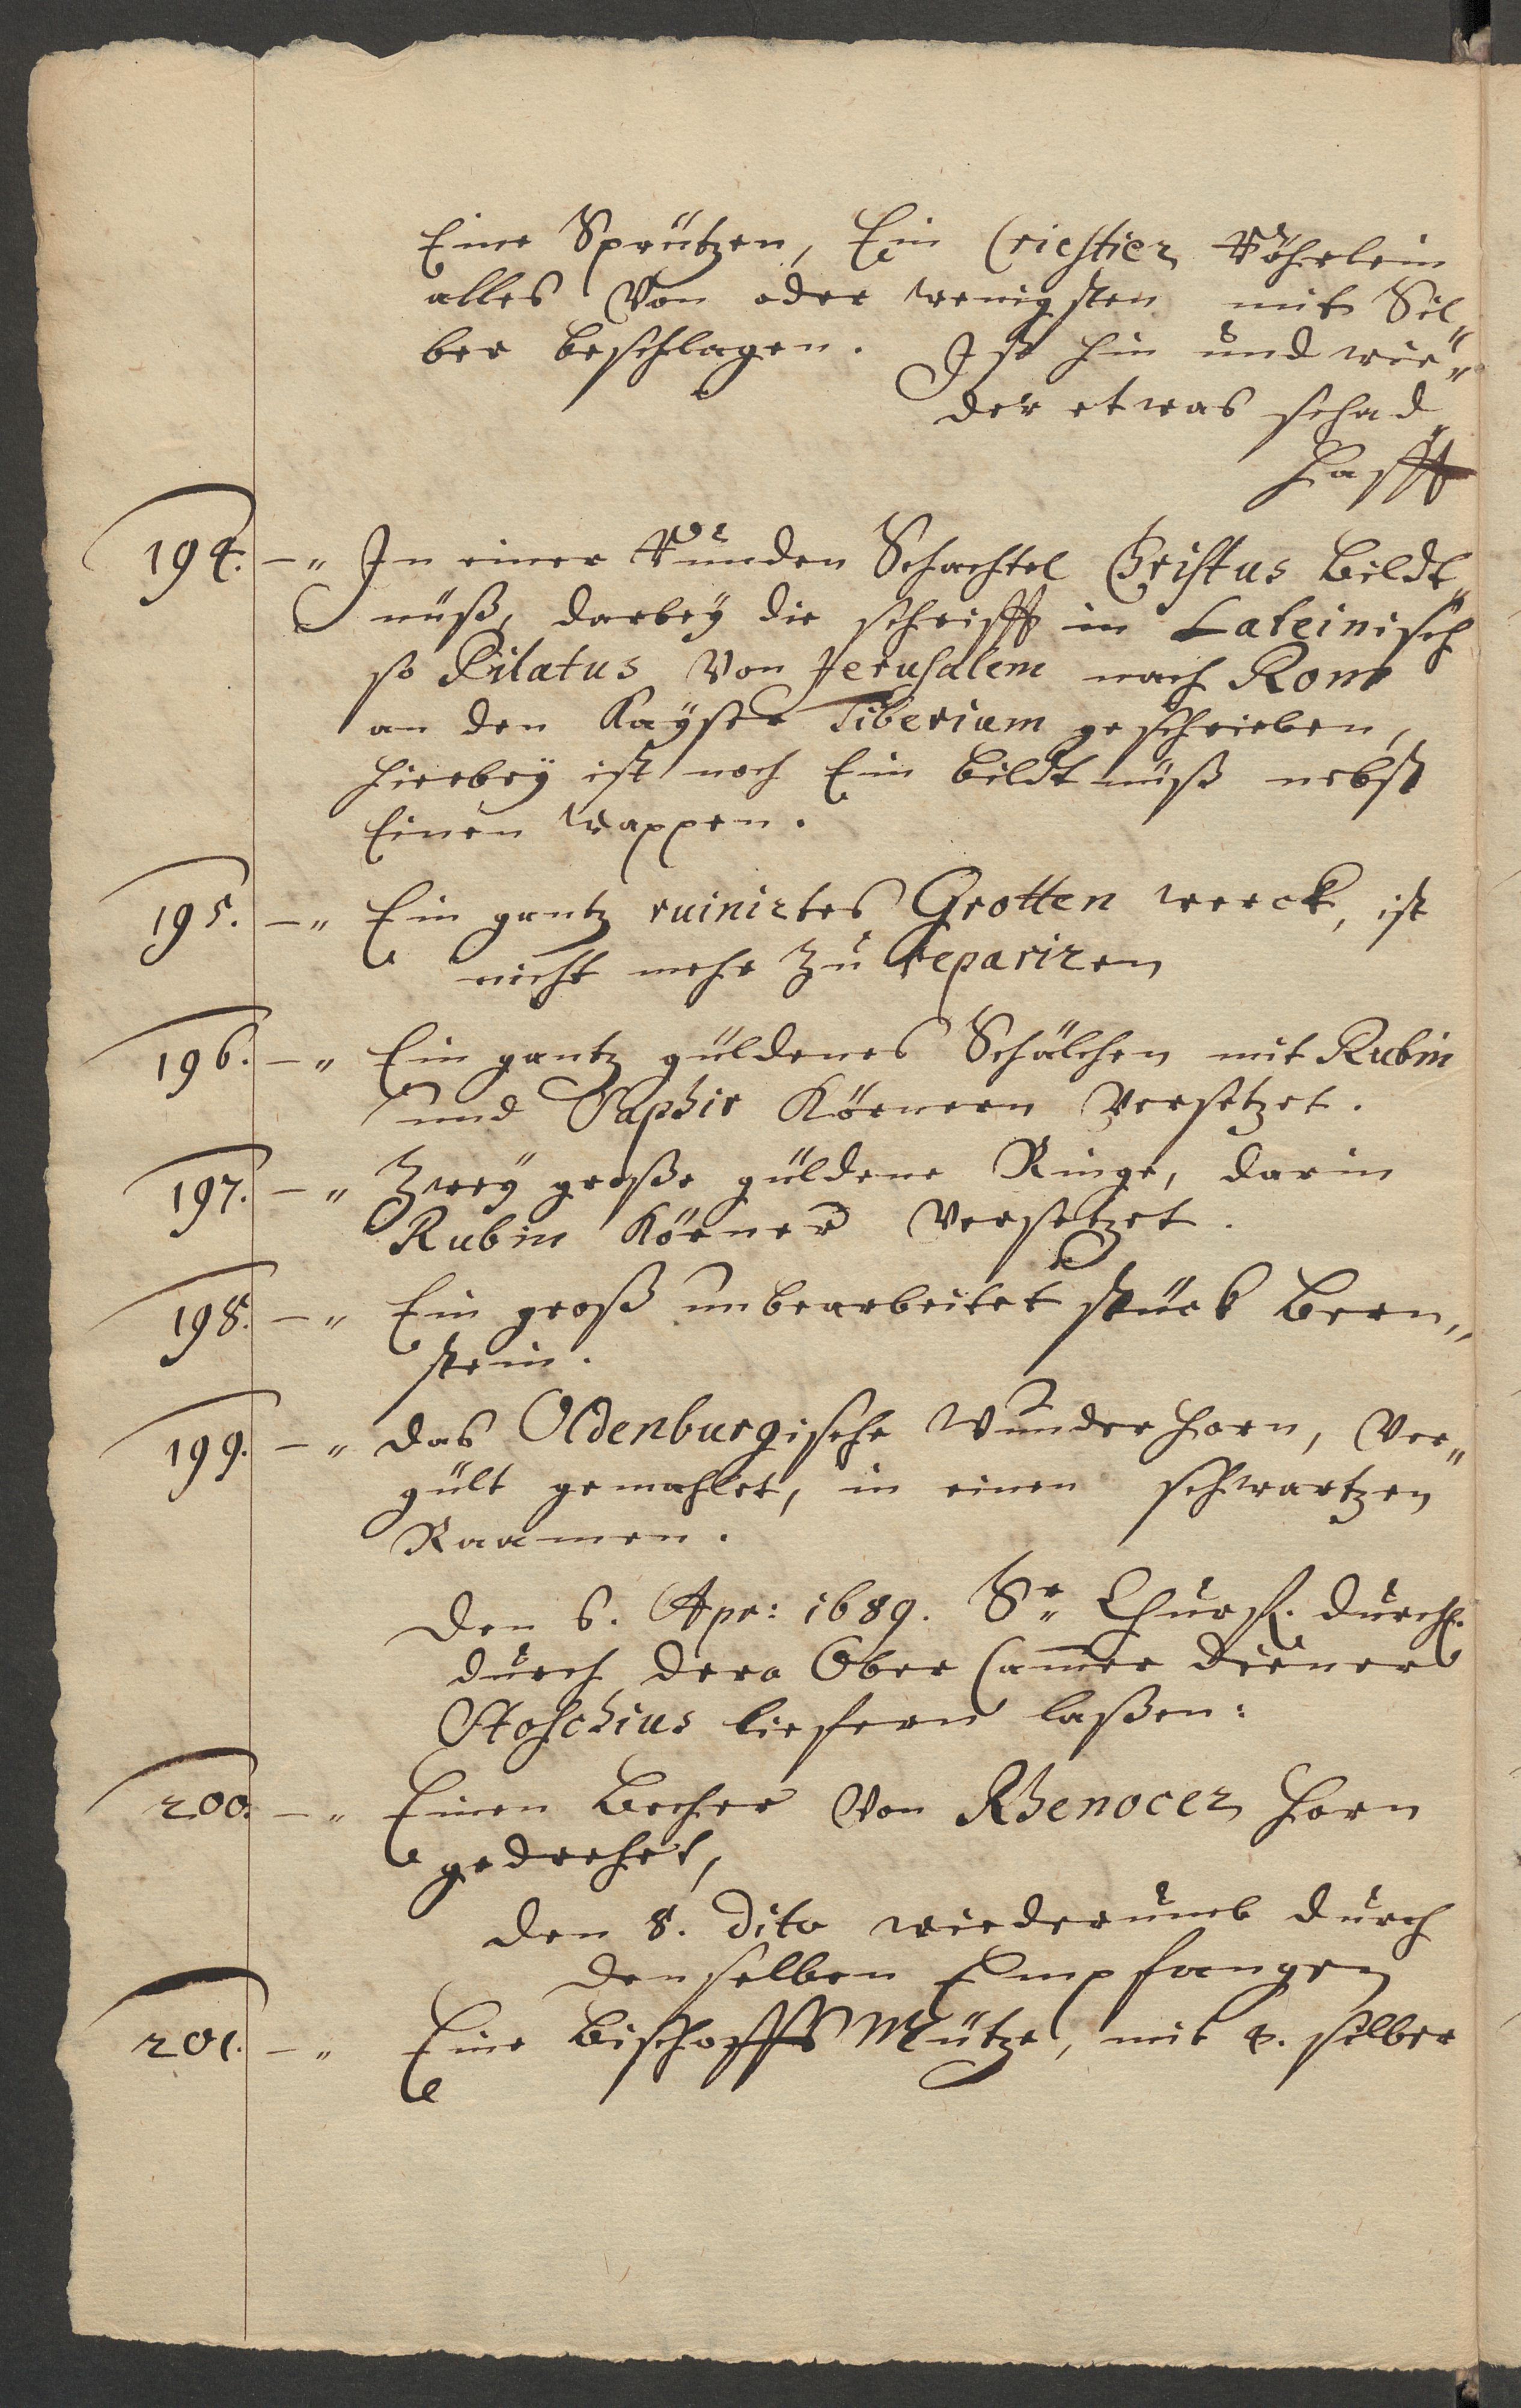 Eine Sprützen, Ein Cristier Röhrlein
alles Von oder wenigsten mit Sil„
ber beschlagen. Ist hin und wie„
der etwas schad„
hafft
194. –„ In einer Runden Schachtel Christus Bildt„
nüß, darbeÿ die schrifft in Lateinisch
so Pilatus Von Jerusalem nach Rom
an den Kaÿser Tiberium geschrieben,
hierbeÿ ist noch Ein Bildtnüß nebst
Einen wappen.
195. –„ Ein gantz ruinirtes Grotten werck, ist
nicht mehr zu repariren
196. –„ Ein gantz güldenes Schälchen mit Rubin
und Saphir Körnern Versetzet.
197. –„ Zweÿ große güldene Ringe, darin
Rubin Körner Versetzet.
198. –„ Ein groß unbearbeitet stück Bern„
stein.
199. –„ das Oldenburgische Wunderhorn, Ver„
gült gemahlet, in einen schwartzen
Raamen.
Den 6. Apr: 1689. Sr. Churf. Durchl.
durch dero Ober Cammer diener
Stoschius liefern laßen:
200. –„ Einen Becher Von Rhenocer horn
gedrehet,
den 8. dito wiederumb durch
denselben Empfangen
201. –„ Eine BischoffsMütze, mit 4. silber